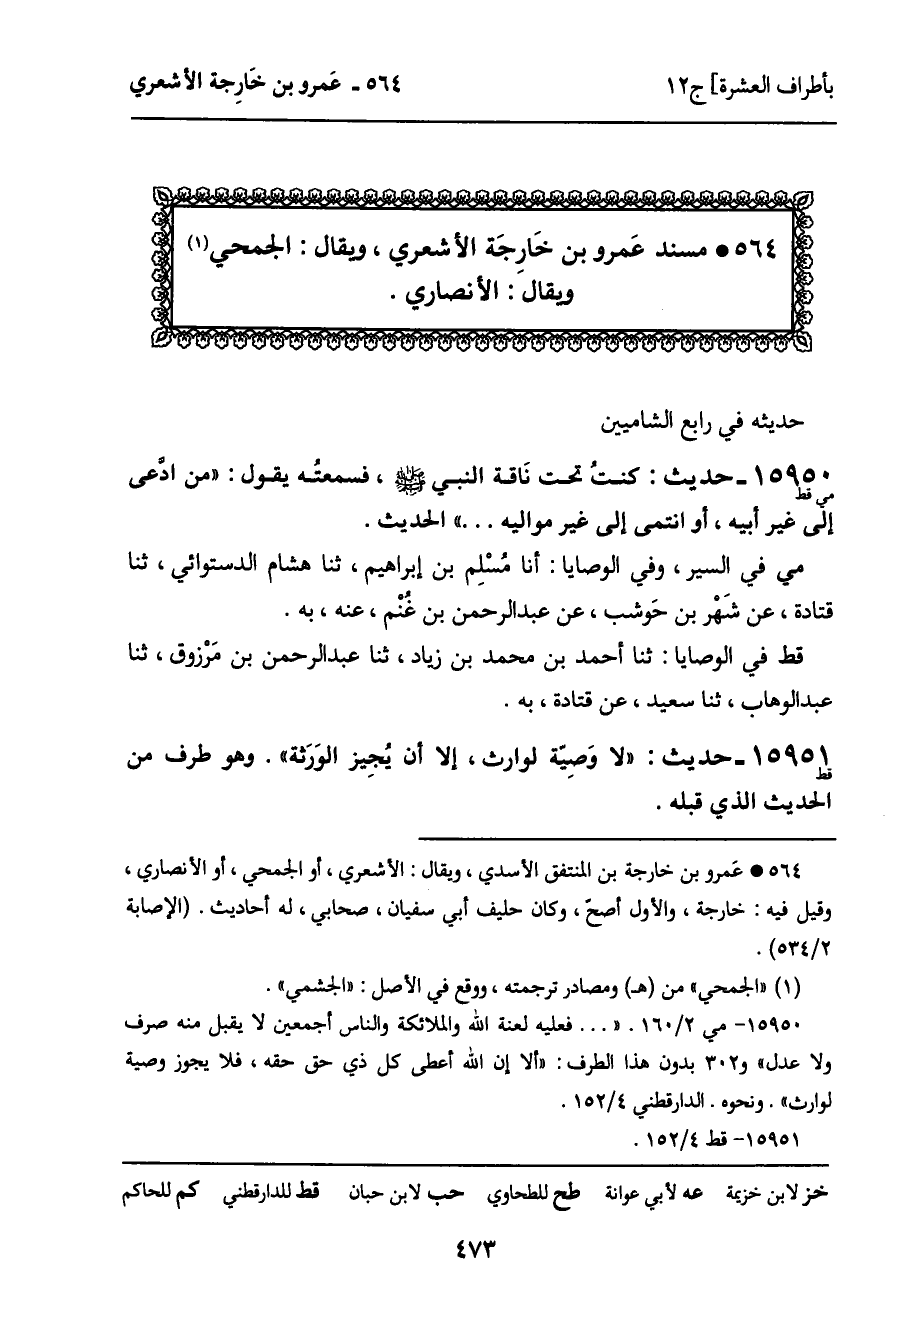 بأطراف العشرة] ج١٢
٥٦٤ ـ عَمرو بن خَارِجة الأشعري
٥٦٤ ● مسند عَمرو بن خَارِجَة الأشعري ، ويقال : الجمحي(١)
ويقال : الأنصاري .
حديثه في رابع الشاميين
١٥٩٥٠ ـ حديث : كنتُ تحت نَاقة النبي ﷺ ، فسمعتُه يقول : «من ادَّعى
مي قط
إلى غير أبيه ، أو انتمى إلى غير مواليه ...» الحديث .
مي في السير ، وفي الوصايا : أنا مُسْلِم بن إبراهيم ، ثنا هشام الدستوائي ، ثنا
قتادة ، عن شَهْر بن حَوشب ، عن عبدالرحمن بن غُنْم ، عنه ، به .
قط في الوصايا : ثنا أحمد بن محمد بن زياد ، ثنا عبدالرحمن بن مَرْزوق ، ثنا
عبدالوهاب ، ثنا سعيد ، عن قتادة ، به .
١٥٩٥١ ـ حديث : «لا وَصِيّة لوارث ، إلا أن يُجِيز الوَرَثة» . وهو طرف من
قط
الحديث الذي قبله .
٥٦٤ ● عَمرو بن خارجة بن المنتفق الأسدي ، ويقال : الأشعري ، أو الجمحي ، أو الأنصاري ،
وقيل فيه : خارجة ، والأول أصحّ ، وكان حليف أبي سفيان ، صحابي ، له أحاديث . (الإصابة
٥٣٤/٢) .
(١) «الجمحي» من (هـ) ومصادر ترجمته ، ووقع في الأصل : «الجشمي» .
١٥٩٥٠- مي ١٦٠/٢ . « ... فعليه لعنة الله والملائكة والناس أجمعين لا يقبل منه صرف
ولا عدل» و٣٠٢ بدون هذا الطرف : «ألا إن الله أعطى كل ذي حق حقه ، فلا يجوز وصية
لوارث» . ونحوه . الدارقطني ١٥٢/٤ .
١٥٩٥١- قط ١٥٢/٤ .
خز لابن خزيمة عه لأبي عوانة طح للطحاوي حب لابن حبان قط للدارقطني كم للحاكم
٤٧٣